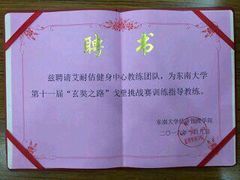 聘书
兹聘请艾耐估健身中心教练团队，为东南大学
第十一届“玄奘之路”戈壁挑战赛训练指导教练。
东南大学经济管理学院
二〇一六年 月 日